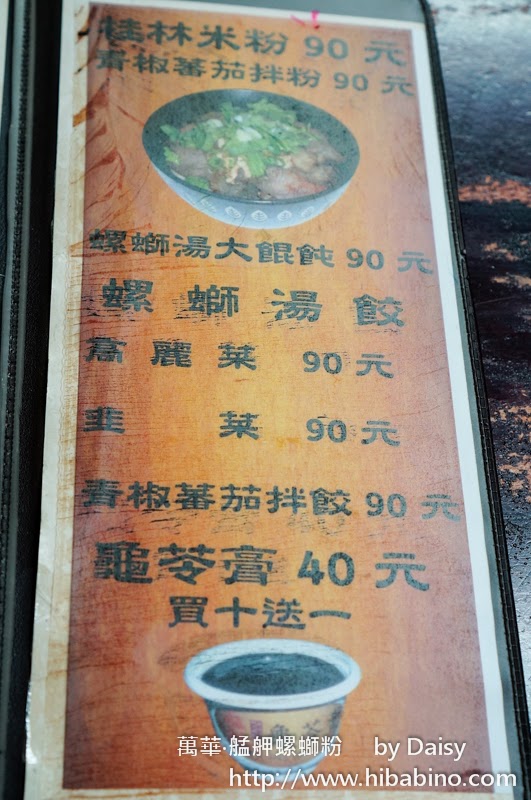 桂林米粉 90 元
青椒蕃茄拌粉 90 元
螺螄湯大餛飩 90 元
螺螄湯餃
高麗菜 90 元
韭菜 90 元
青椒蕃茄拌餃 90 元
龜苓膏 40 元
買十送一
萬華·艋舺螺螄粉 by Daisy
http://www.hibabino.com